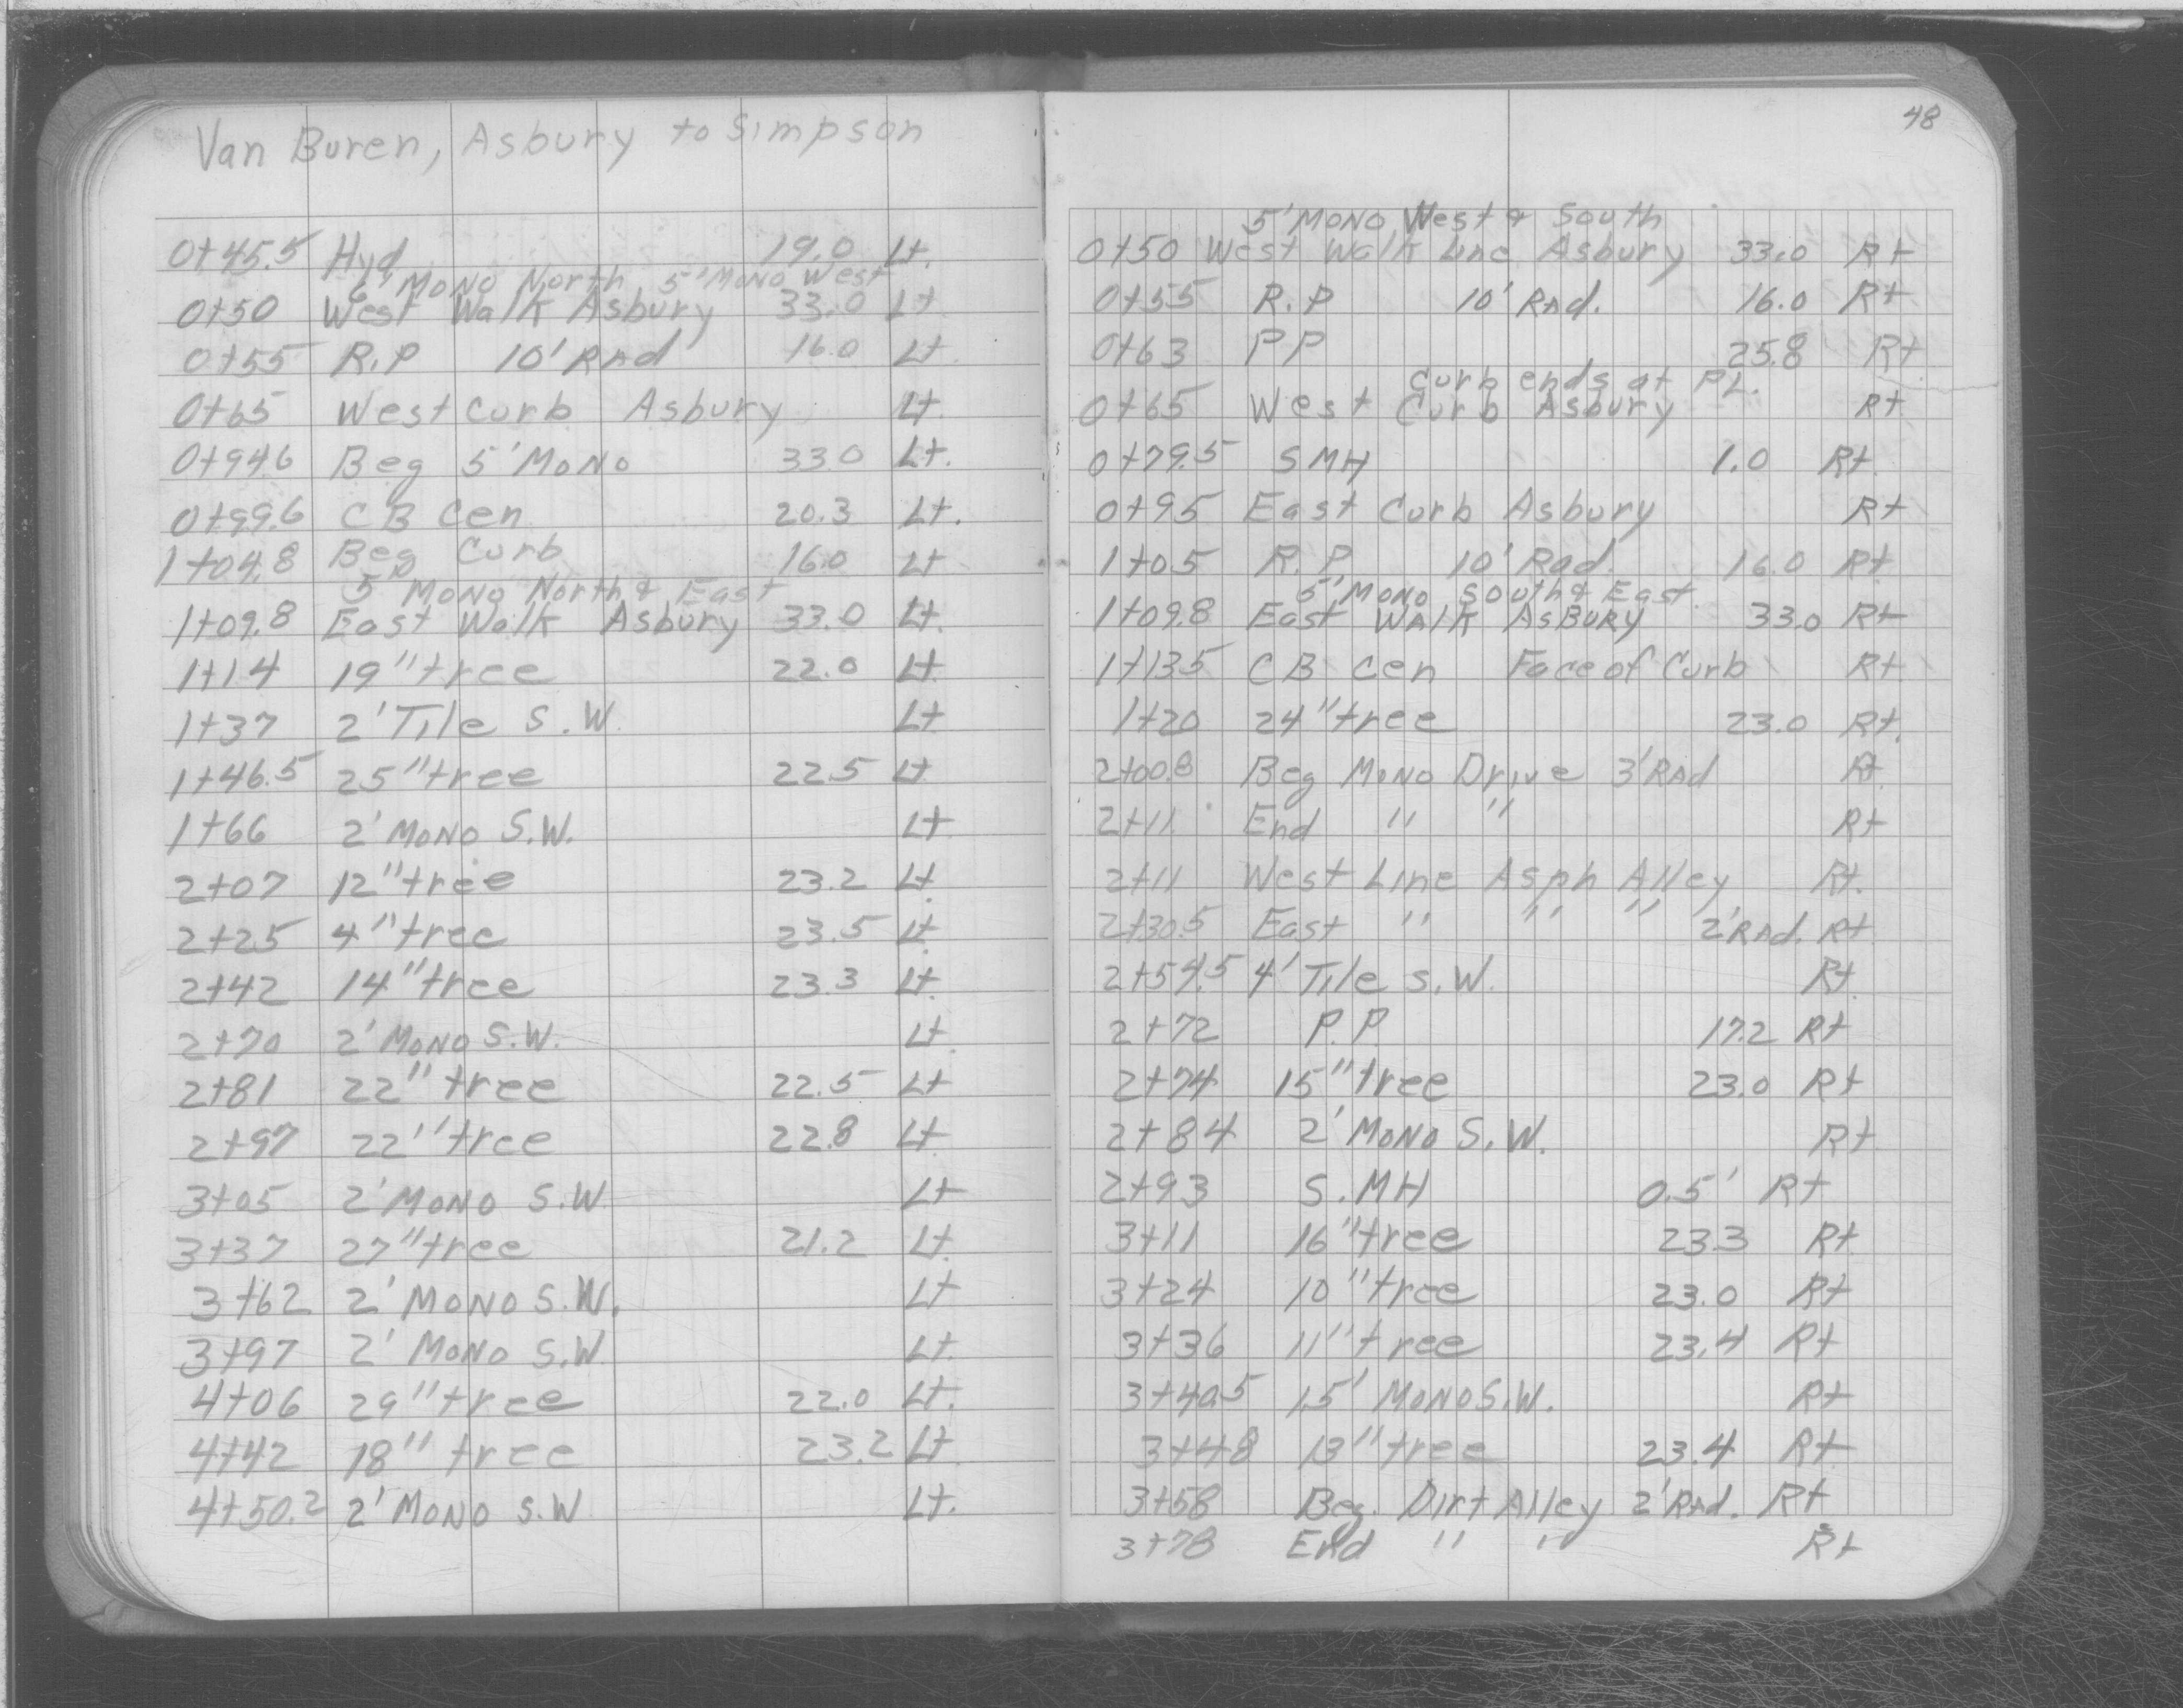 Van Buren, Asbury to Simpson
0+45.5 Hyd 19.0 Lt.
6' Mono North 5' Mono West
0+50 West Walk Asbury 33.0 Lt
0+55 R.P 10' Rad 16.0 Lt.
0+65 West Curb Asbury Lt.
0+94.6 Beg 5' Mono 33.0 Lt.
0+99.6 CB Cen 20.3 Lt.
1+04.8 Beg Curb 16.0 Lt
5' Mono North & East
1+09.8 East Walk Asbury 33.0 Lt.
1+14 19" tree 22.0 Lt.
1+37 2' Tile S.W. Lt
1+46.5 25" tree 22.5 Lt.
1+66 2' Mono S.W. Lt
2+07 12" tree 23.2 Lt.
2+25 4" tree 23.5 Lt.
2+42 14" tree 23.3 Lt.
2+70 2' Mono S.W. Lt.
2+81 22" tree 22.5 Lt
2+97 22" tree 22.8 Lt.
3+05 2' Mono S.W. Lt
3+37 27" tree 21.2 Lt.
3+62 2' Mono S.W. Lt
3+97 2' Mono S.W. Lt.
4+06 29" tree 22.0 Lt.
4+42 18" tree 23.2 Lt
4+50.2 2' Mono S.W Lt.
48
5' Mono West & South
0+50 West Walk Line Asbury 33.0 Rt
0+55 R.P 10' Rad. 16.0 Rt
0+63 PP 25.8 Rt
Curb ends at PL.
0+65 West Curb Asbury Rt
0+79.5 SMH 1.0 Rt.
0+95 East Curb Asbury Rt
1+05 R.P. 10' Rad. 16.0 Rt.
5' Mono South & East.
1+09.8 East Walk Asbury 33.0 Rt
1+13.5 CB Cen Face of Curb Rt.
1+20 24" tree 23.0 Rt.
2+00.8 Beg Mono Drive 3' Rad Rt.
2+11 End " " Rt
2+11 West Line Asph Alley Rt.
2+30.5 East " " " 2' Rad. Rt.
2+54.5 4' Tile S.W. Rt.
2+72 P.P. 17.2 Rt
2+74 15" tree 23.0 Rt
2+84 2' Mono S.W. Rt
2+93 S.MH 0.5' Rt
3+11 16" tree 23.3 Rt.
3+24 10" tree 23.0 Rt
3+36 11" tree 23.4 Rt
3+40.5 1.5' Mono S.W. Rt
3+48 13" tree 23.4 Rt
3+58 Beg. Dirt Alley 2' Rad. Rt
3+78 End " " Rt